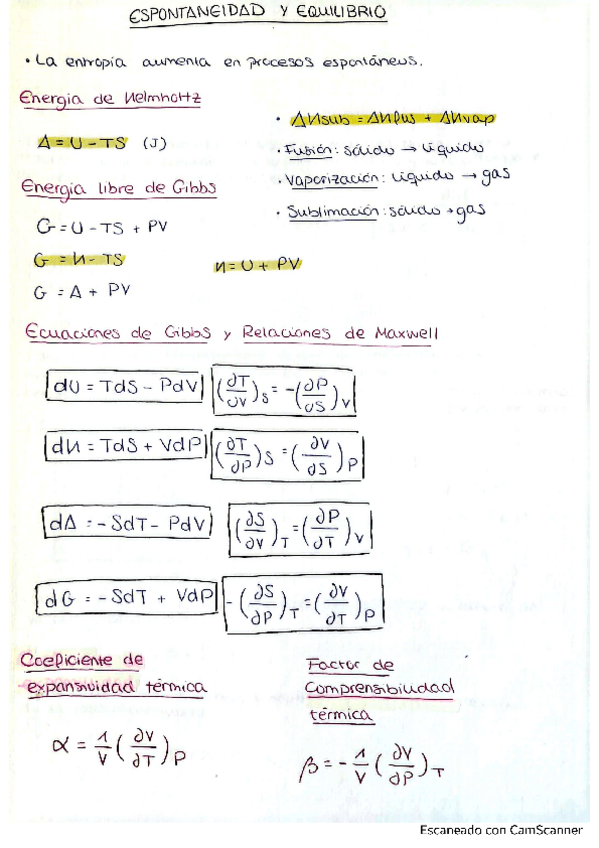 ESPONTANEIDAD Y EQUILIBRIO
• La entropía aumenta en procesos espontáneos.
Energía de Helmholtz
A = U - TS (J)
• ΔHsub = ΔHfus + ΔHvap
• Fusión: sólido → líquido
• Vaporización: líquido → gas
• Sublimación: sólido → gas
Energía libre de Gibbs
G = U - TS + PV
G = H - TS
H = U + PV
G = A + PV
Ecuaciones de Gibbs y Relaciones de Maxwell
dU = TdS - PdV (∂T/∂V)S = -(∂P/∂S)V
dH = TdS + VdP (∂T/∂P)S = (∂V/∂S)P
dA = -SdT - PdV (∂S/∂V)T = (∂P/∂T)V
dG = -SdT + VdP -(∂S/∂P)T = (∂V/∂T)P
Coeficiente de
expansividad térmica
α = 1/V (∂V/∂T)P
Factor de
Comprensibilidad
térmica
β = - 1/V (∂V/∂P)T
Escaneado con CamScanner